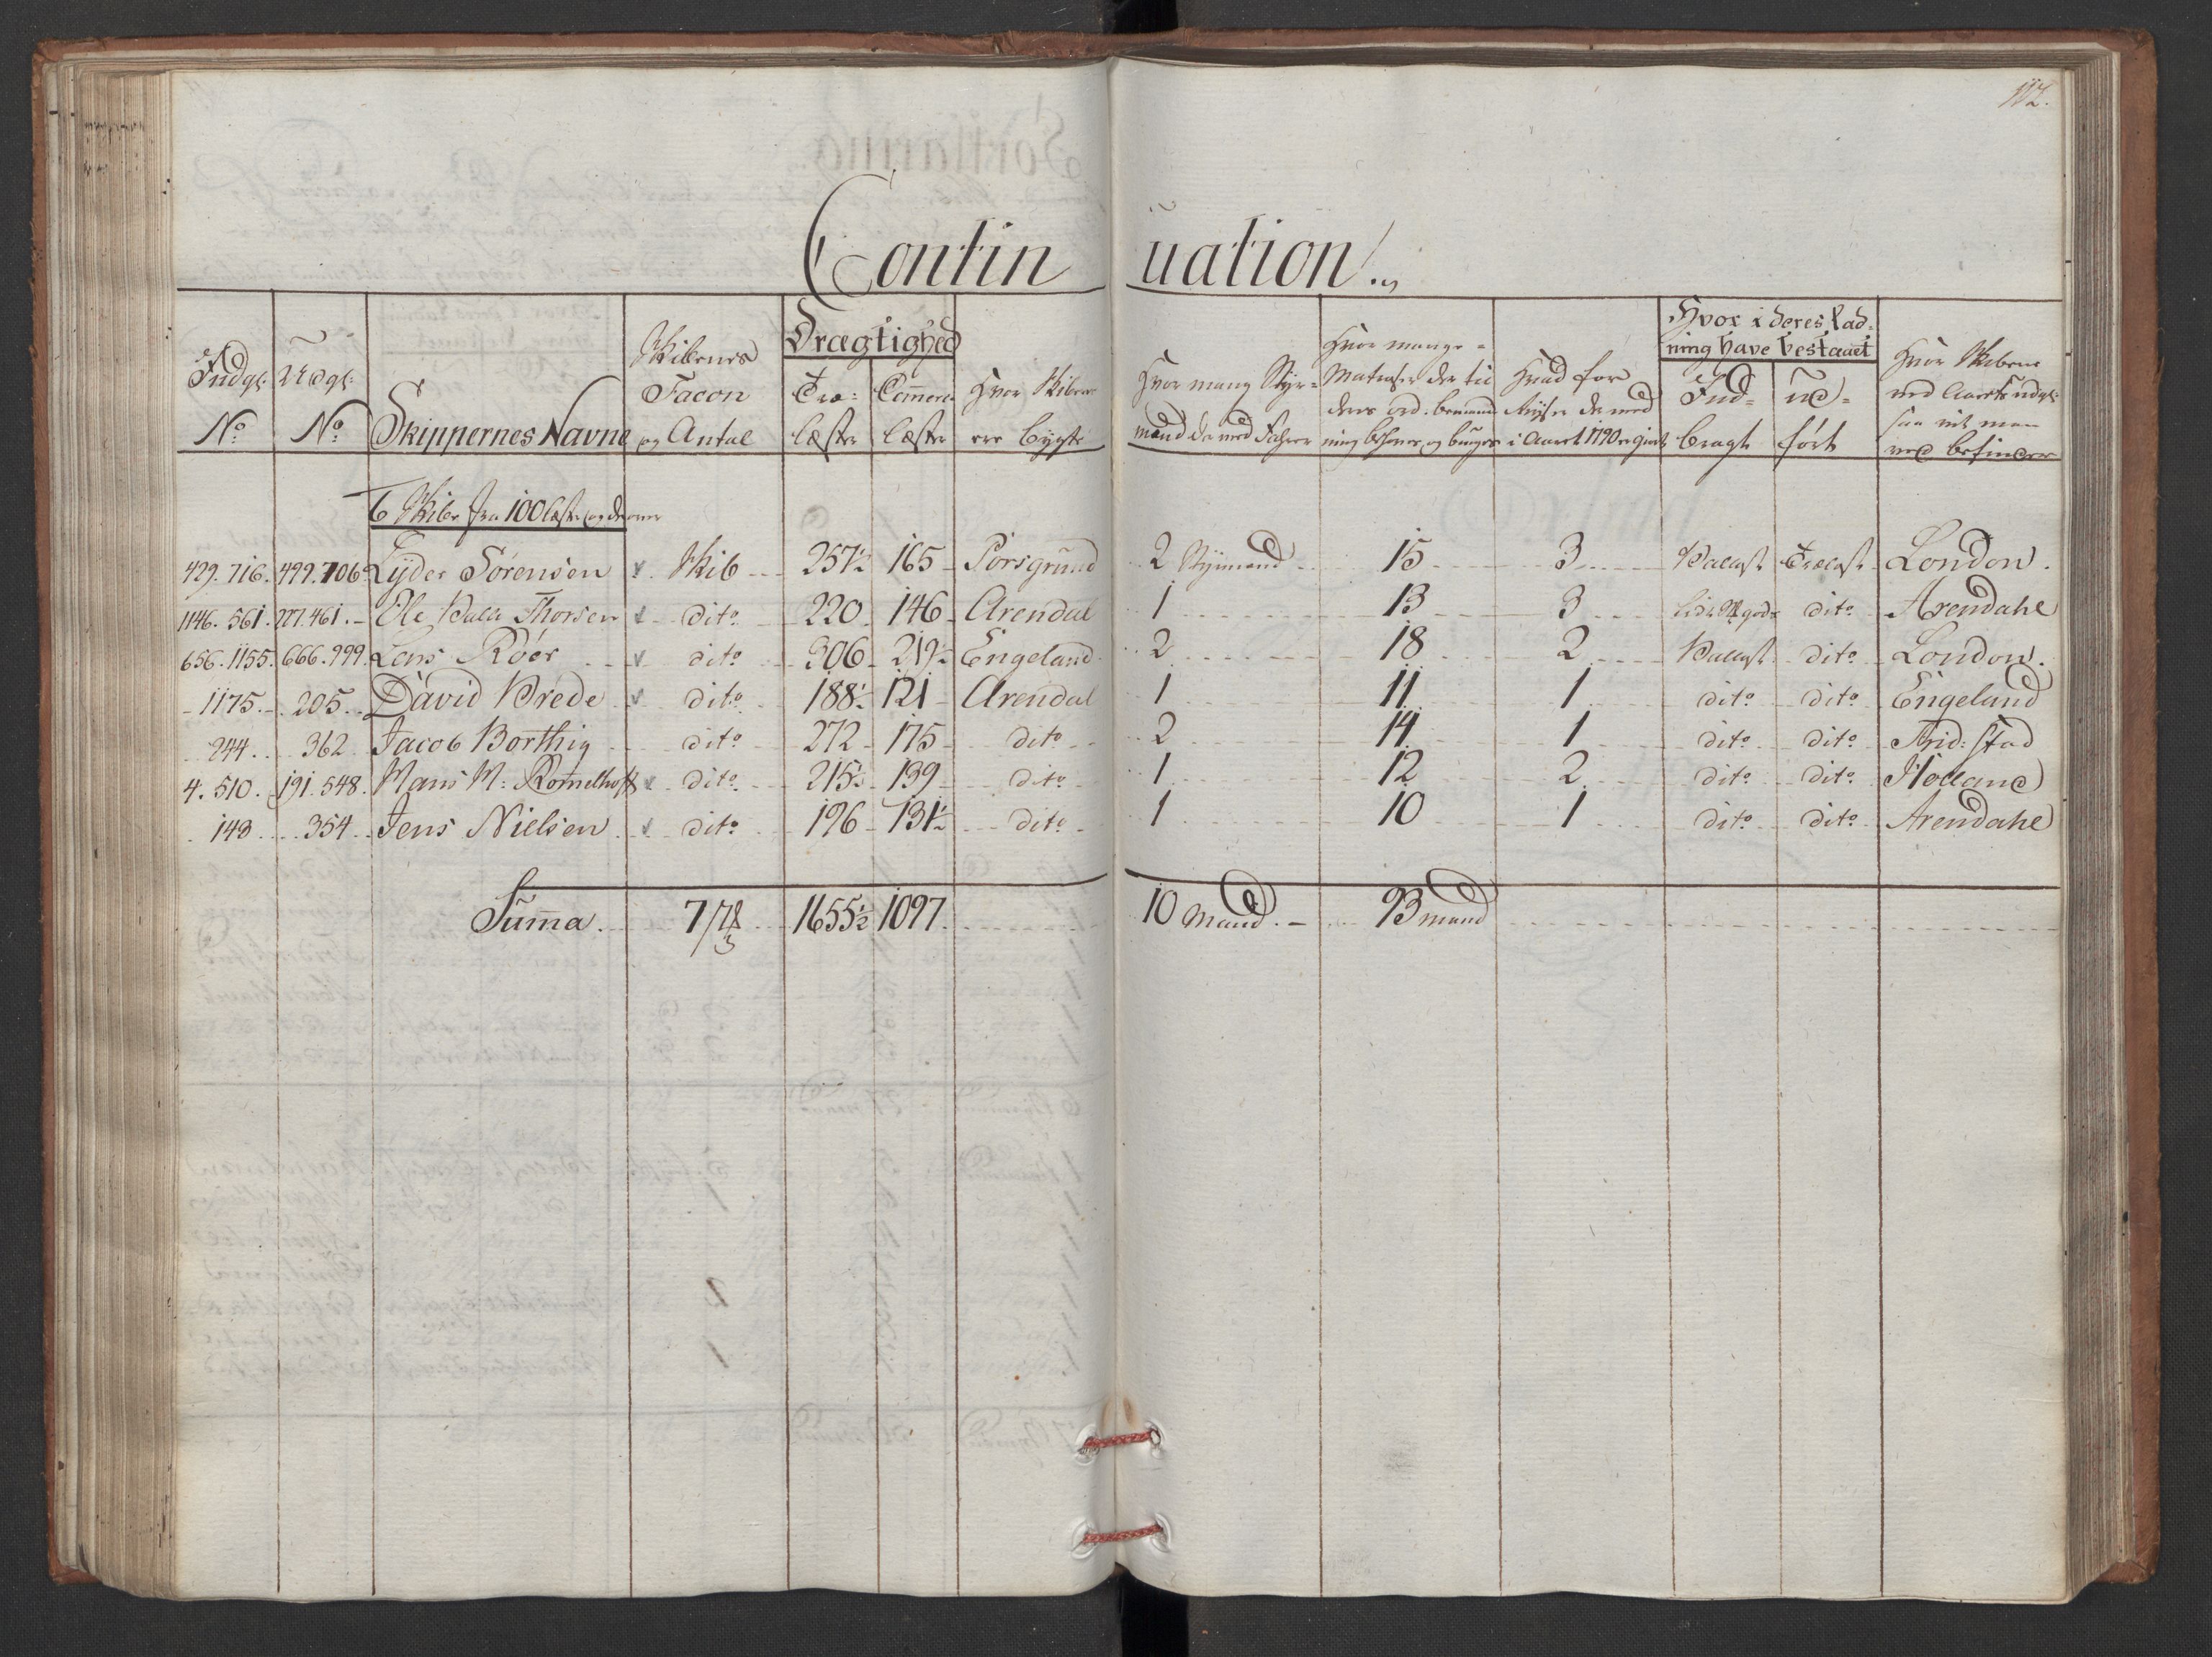 112.
Continuation.
Indgl: No Udgl: No Skippernes Navne Skibenes Facon og Antal Drægtighed Træ: læster Commerce læster Hvor Skibene ere bÿgte Hvor mang Stÿr= mænd de med Fahrer Hvor mange Matroser der til deres ord. bemand ning behøves og bruges Hvad for Reÿser de med i Aaret 1790 er giort Hvor i deres Lad= ning have bestaaet Ind= bragt ud= ført Hvor Skibene ved Aarets udgl: saa vit man ved befinder
6 Skibe fra 100 læster og derover
429. 716. 499. 706 Lyder Sörensen Skib 257½ 165 Porsgrund 2 Stÿrmænd 15 3 Ballast Trælast London.
1146. 561. 277. 461. Ole Thorsen dito 220 146 Arendal 1 13 3 dito Arendahl
656. 1155. 666. 999. Lars Röer dito 306 219½ Engeland 2 18 2 Ballast dito London.
1175. 205. David Brede dito 188½ 121 Arendal 1 11 1 dito dito Engeland
244. 362 Jacob Borthig dito 272 175 dito 2 14 1 dito dito Frid: stad
4. 510. 191. 548. Hans M: Romelhoff dito 215½ 139 dito 1 12 2 dito dito Holland
143 354 Jens Nielsen dito 196 131½ dito 1 10 1 dito dito Arendahl
Suma. 7/78 3 1655½ 1097. 10 Mand. 93 mand